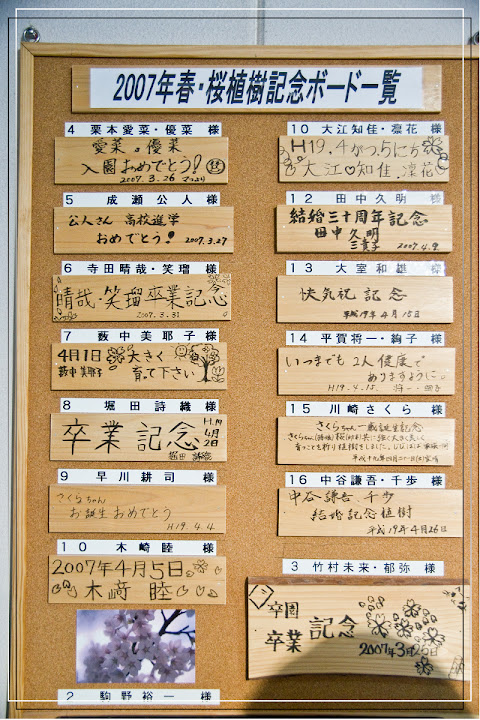 2007年春・桜植樹記念ボード一覧
4 栗本愛菜・優菜 様
愛菜。優菜
入園おめでとう!
2007.3.26
5 成瀬公人 様
公人さん 高校進学
おめでとう! 2007.3.27
6 寺田晴哉・笑瑠 様
晴哉・笑瑠卒業記念
2007.3.31
7 薮中美耶子 様
4月1日 大きく
薮中美耶子 育って下さい
8 堀田詩織 様
卒業記念
H.19
4月
2日
堀田 詩織
9 早川耕司 様
さくらちゃん
お誕生おめでとう
H19.4.4
10 木崎睦 様
2007年4月5日
木﨑 睦
2 駒野裕一 様
10 大江知佳・凛花 様
H19.4がつ.5にち
大江♡知佳.凛花
12 田中久明 様
結婚三十周年記念
田中久明
2007.4.9.
13 大室和雄 様
快気祝記念
平成19年4月15日
14 平賀将一・絢子 様
いつまでも 2人健康で
ありますように。
H19.4.15.
15 川崎さくら 様
さくらちゃん一歳誕生記念
16 中谷謙吾・千歩 様
中谷謙吾、千歩
結婚記念植樹
平成19年4月26日
3 竹村未来・郁弥 様
卒園
卒業 記念
2007年3月25日